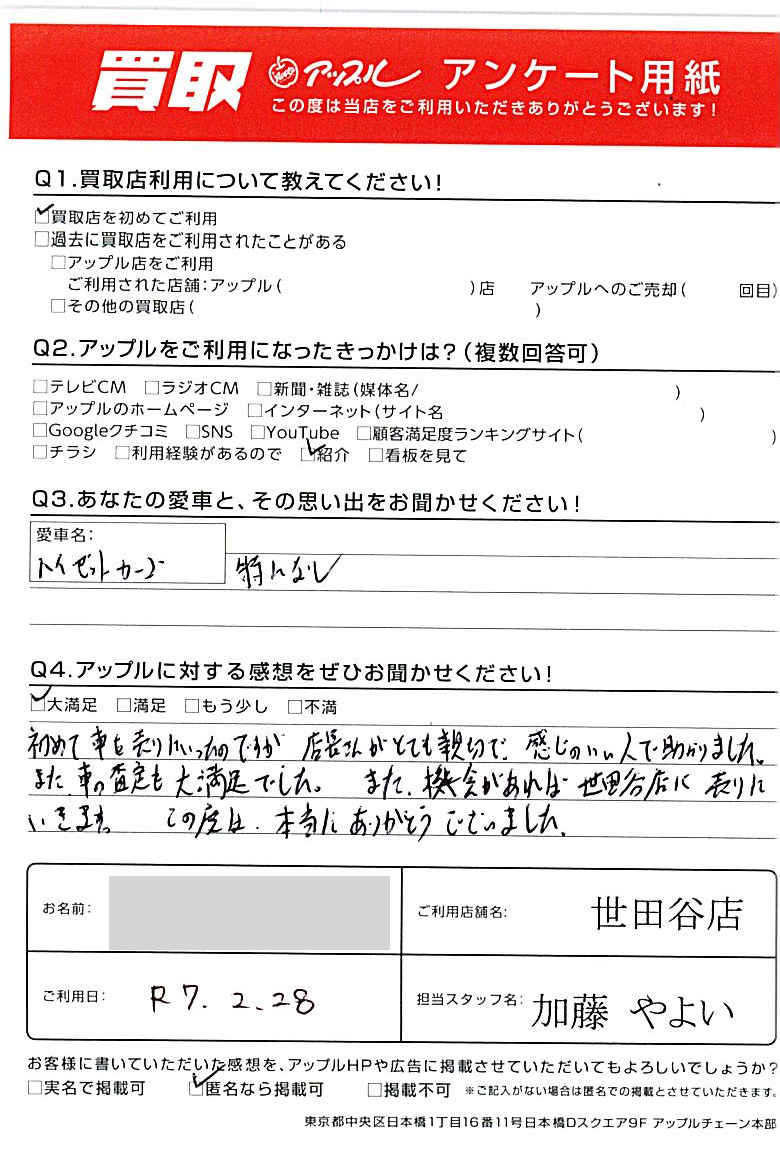 買取 Apple アップル アンケート用紙
この度は当店をご利用いただきありがとうございます!
Q1.買取店利用について教えてください!
☑買取店を初めてご利用
□過去に買取店をご利用されたことがある
□アップル店をご利用
ご利用された店舗:アップル( )店 アップルへのご売却( 回目)
□その他の買取店( )
Q2.アップルをご利用になったきっかけは?(複数回答可)
□テレビCM □ラジオCM □新聞・雑誌(媒体名/ )
□アップルのホームページ □インターネット(サイト名 )
□Googleクチコミ □SNS □YouTube □顧客満足度ランキングサイト( )
□チラシ □利用経験があるので ☑紹介 □看板を見て
Q3.あなたの愛車と、その思い出をお聞かせください!
愛車名:
ハイゼットカーゴ 特になし
Q4.アップルに対する感想をぜひお聞かせください!
☑大満足 □満足 □もう少し □不満
初めて車を売りにいったのですが 店長さんがとても親切で、感じのいい人で助かりました。
また、車の査定も大満足でした。 また、機会があれば世田谷店に売りに
いきます。 この度は、本当にありがとうございました。
お名前: ご利用店舗名: 世田谷店
ご利用日: R7.2.28 担当スタッフ名: 加藤 やよい
お客様に書いていただいた感想を、アップルHPや広告に掲載させていただいてもよろしいでしょうか?
□実名で掲載可 ☑匿名なら掲載可 □掲載不可 ※ご記入がない場合は匿名での掲載とさせていただきます。
東京都中央区日本橋1丁目16番11号日本橋Dスクエア9F アップルチェーン本部